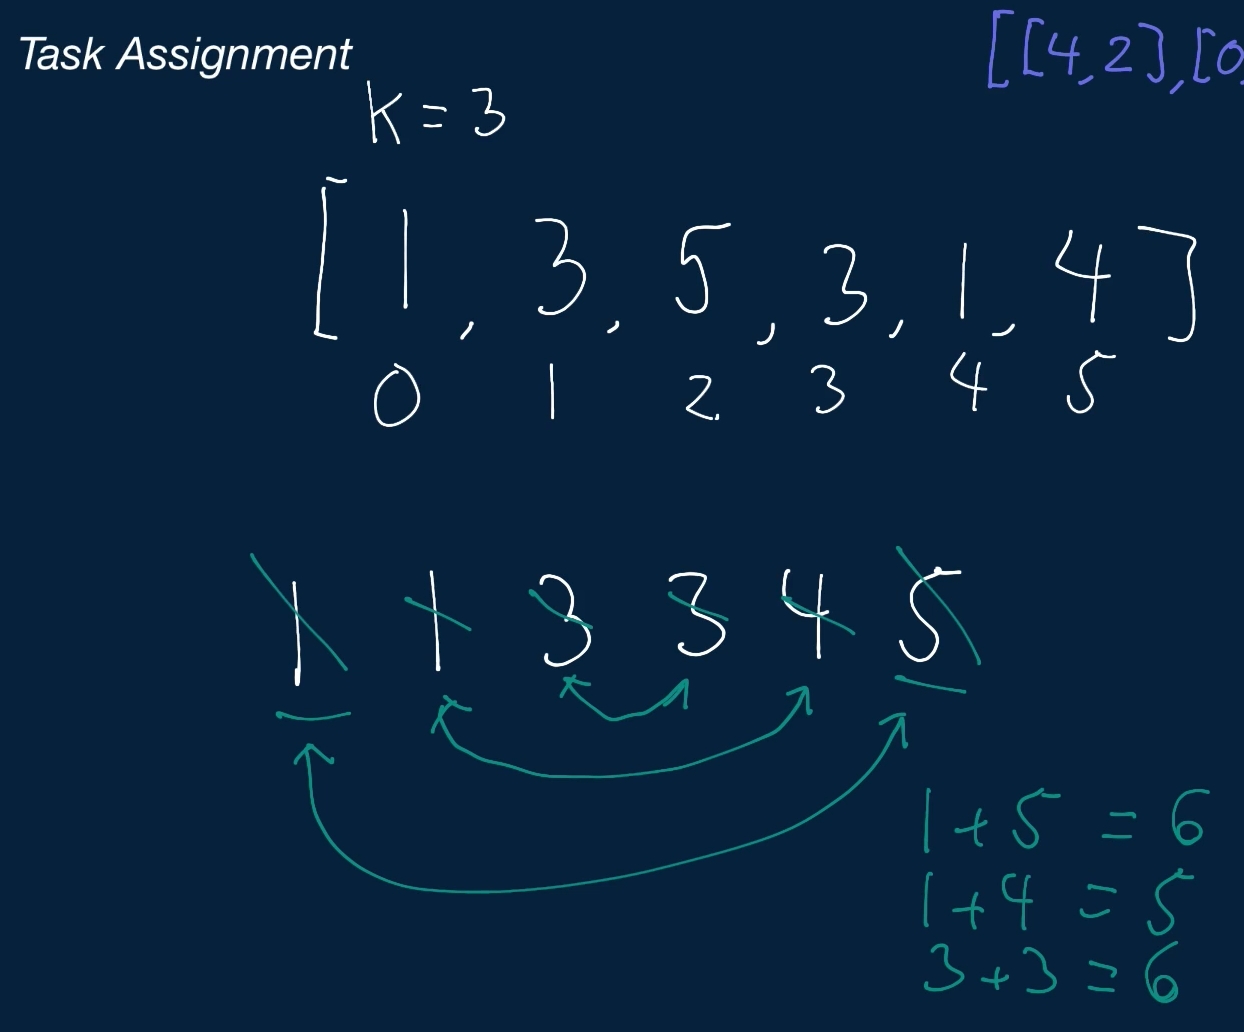 Task Assignment
[[4,2],[0,
K = 3
[1, 3, 5, 3, 1, 4]
0 1 2 3 4 5
1 1 3 3 4 5
1 + 5 = 6
1 + 4 = 5
3 + 3 = 6